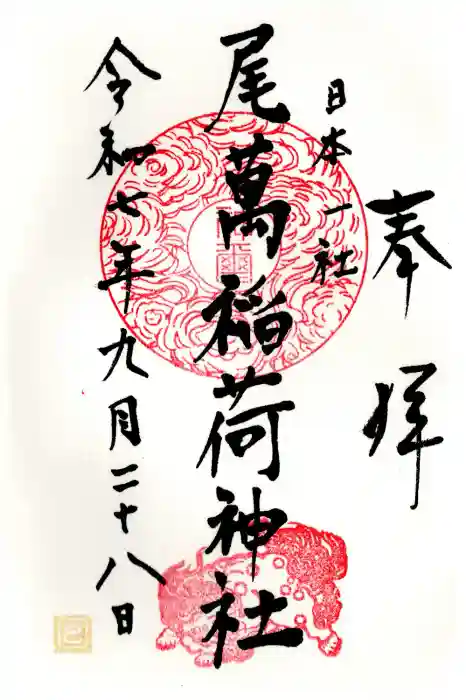 奉拝
日本一社
尾萬稲荷神社
令和七年九月二十八日